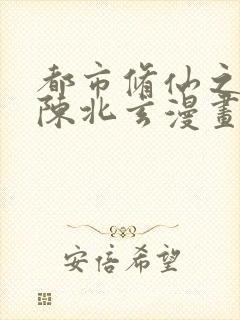 都市脩仙之
陳北玄漫畫
安倍希望